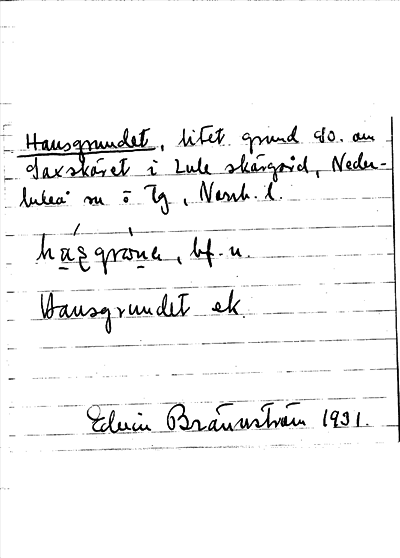 Hansgrundet, litet grund SO. om
Laxskäret i Lule skärgård, Neder-
luleå sn o Tg, Norrb. l.
bf. n.
Hansgrundet ek.
Edvin Brännström 1931.